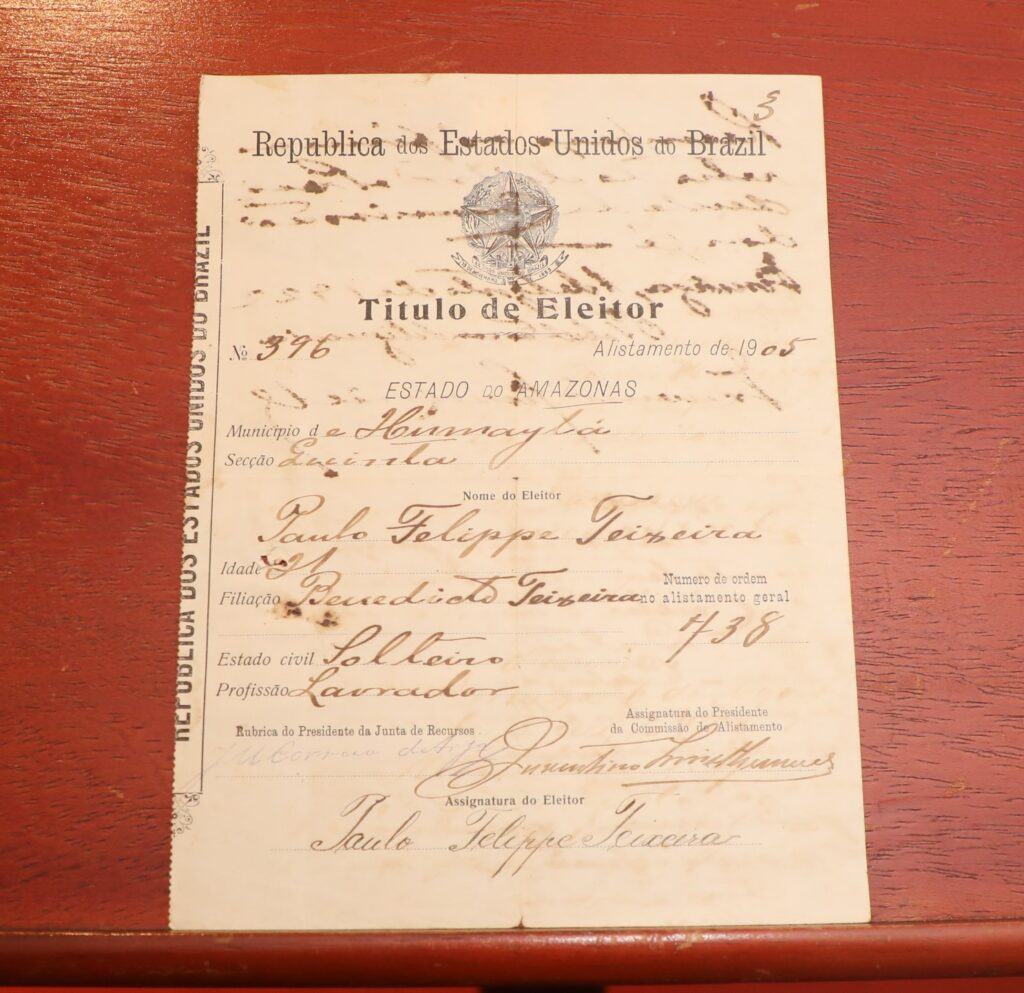 3
Republica dos Estados Unidos do Brazil
Titulo de Eleitor
Nº 396 Alistamento de 1905
ESTADO DO AMAZONAS
Municipio de Humaytá
Secção
Nome do Eleitor
Paulo Felippe Teixeira
Idade 21
Filiação Benedicto Teixeira
Numero de ordem
no alistamento geral
438
Estado civil Solteiro
Profissão Lavrador
Rubrica do Presidente da Junta de Recursos
Assignatura do Presidente
da Commissão de Alistamento
Assignatura do Eleitor
Paulo Felippe Teixeira
REPUBLICA DOS ESTADOS UNIDOS DO BRAZIL